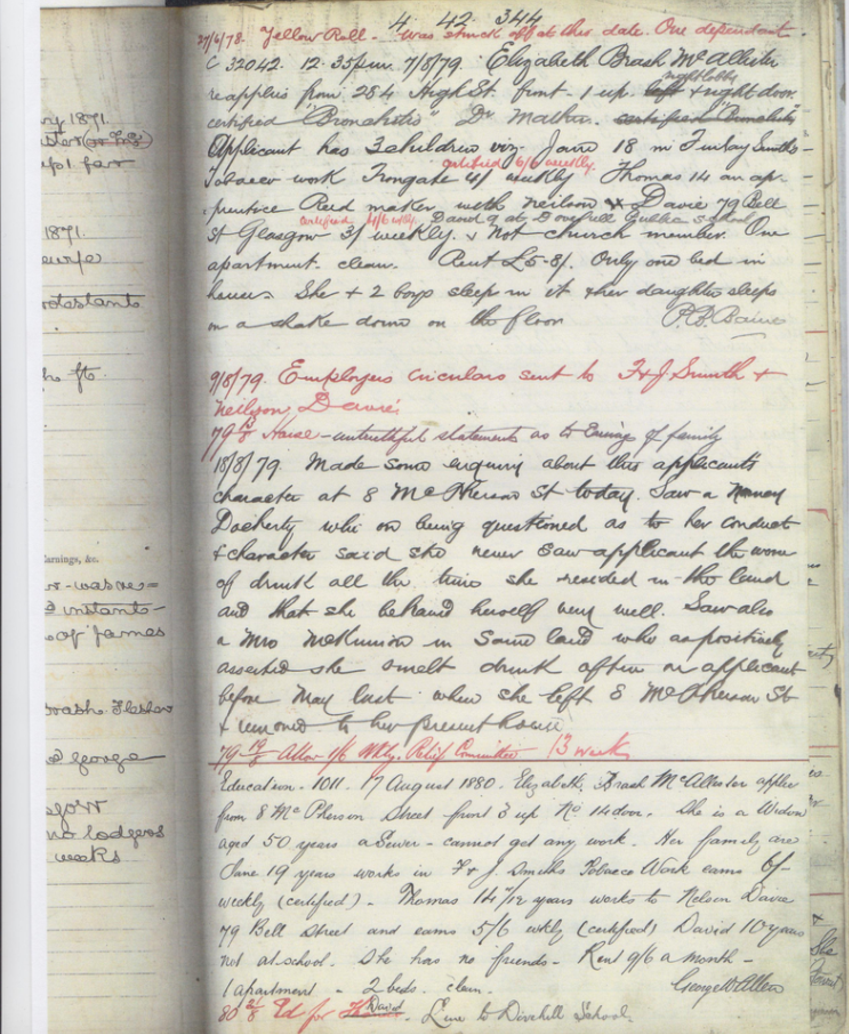 4. 42. 344
27/6/78. Yellow Roll. - was struck off at this date. One dependant.
C 32042. 12.35 p.m. 7/8/79. Elizabeth Brash McAllister
night lobby
reapplies from 284 High St. front - 1 up. left + right door.
certified "Bronchitis" Dr Mather. certified "Bronchitis"
Applicant has 3 children viz. Jane 18 in Finlay Smiths -
certified 6/6 weekly.
Tobacco work Trongate 4/ weekly Thomas 14 an ap-
-prentice Reed maker with Neilson & Davie 79 Bell
certified 4/6 wkly. David 9 at Dovehill Public School
St Glasgow 3/ weekly. & not church member. One
apartment. clean. Rent £5-8/. Only one bed in
house. She + 2 boys sleep in it & her daughter sleeps
on a shake down on the floor P.B. Baine
9/8/79. Employers circulars sent to F & J. Smith +
Neilson, Davie.
79 12/8 House - untruthful statements as to Earnings of family
18/8/79. Made some enquiry about this applicants
character at 8 McPherson St today. Saw a Nancy
Docherty who on being questioned as to her conduct
& character said she never saw applicant the worse
of drink all the time she resided in the land
and that she behaved herself very well. Saw also
a Mrs McKinnon in same land who as positively
asserted she smelt drink often on applicant
before May last when she left 8 McPherson St
& removed to her present house
79 19/8 Allow 1/6 Wkly. Relief Committee 13 weeks
Education. 1011. 17 August 1880. Elizabeth Brash McAllester applies
from 8 McPherson Street front 3 up No 14 door. She is a Widow
aged 50 years a Sewer - cannot get any work. Her family are
Jane 19 years works in F & J. Smiths Tobacco Work earns 6/-
weekly (certified) - Thomas 14 7/12 years works to Nelson Davie
79 Bell Street and earns 5/6 wkly (certified) David 10 years
not at school. She has no friends - Rent 9/6 a month -
1 apartment - 2 beds. clean. George W Allen
David
80 21/8 Ed for Thomas. Line to Dovehill School.
1871.
1871.
rotestants
h ft.
Earnings, &c.
r - was re=
d instants -
of James
rash Flesher
d George
sgow
no lodgers
weeks
She